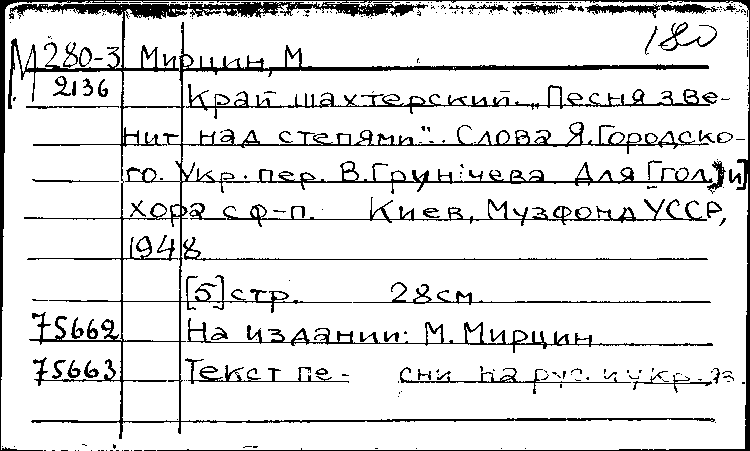 180
М 280-3 Мирцин, М.
2136
Край шахтерский. „Песня зве-
нит над степями". Слова Я.Городско-
го. Укр. пер. В.Грунічева Для [гол.] и]
хора с ф-п. Киев, Музфонд УССР,
1948
[5] стр. 28 см.
75662 На издании: М. Мирцин
75663 Текст пе- сни на рус. и укр. яз.